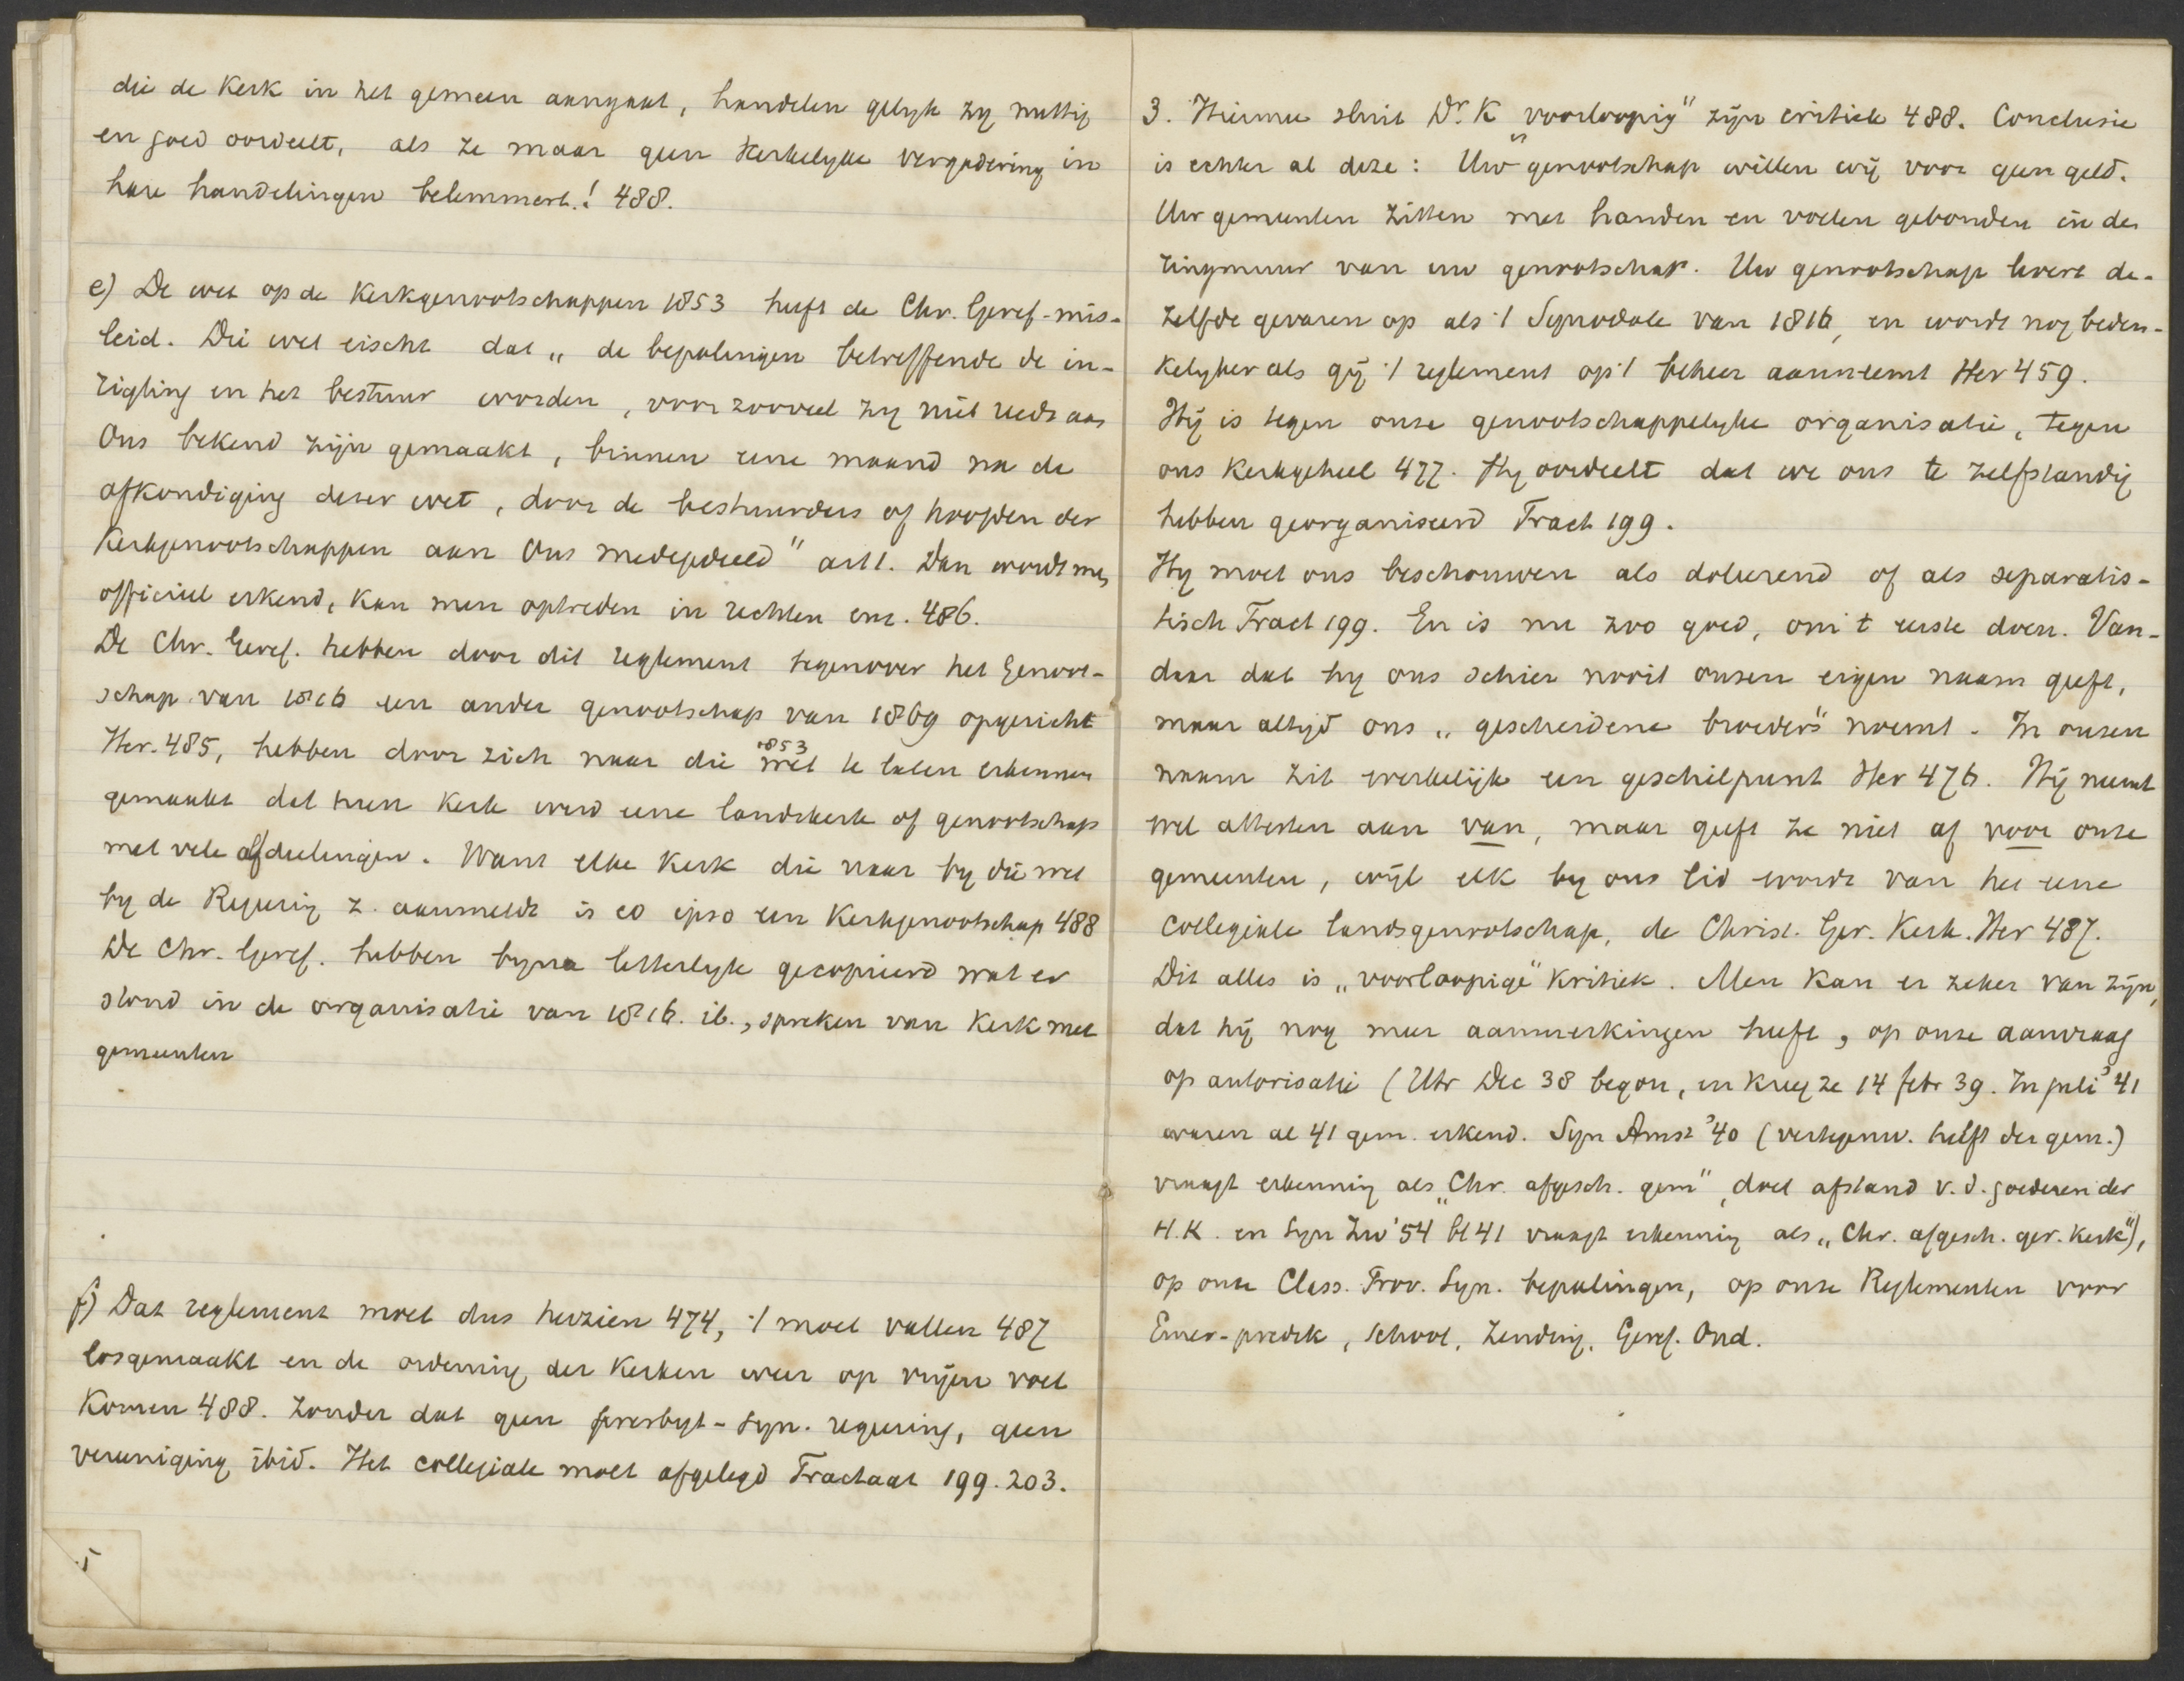 die de Kerk in het gemeen aangaat, handelen gelyk zy nuttig
en goed oordeelt, als ze maar geen Kerkelyke vergadering in
hare handelingen belemmert.! 488.
e) De wet op de Kerkgenootschappen 1853 heeft de Chr. Geref. mis-
leid. Die wet eischt dat „de bepalingen betreffende de in-
rigting en het bestuur worden, voor zooveel zy niet reeds aan
Ons bekend zijn gemaakt, binnen eene maand na de
afkondiging dezer wet, door de bestuurders of hoofden der
Kerkgenootschappen aan Ons medegedeeld" art 1. Dan wordt men
officieel erkend, kan men optreden in rechten enz. 486.
De Chr. Geref. hebben door dit reglement tegenover het Genoot-
schap van 1816 een ander genootschap van 1869 opgericht
Her. 485, hebben door zich naar die 1853 wet te laten erkennen
gemaakt dat hun Kerk werd eene landskerk of genootschap
met vele afdeelingen. Want elke Kerk die naar by die wet
by de Regering z. aanmeldt is eo ipso een Kerkgenootschap 488
De Chr. Geref. hebben byna letterlyk gecopieerd wat er
stond in de organisatie van 1816. ib., spreken van Kerk met
gemeenten
f) Dat reglement moet dus herzien 474, 't moet vallen 487
losgemaakt en de ordening der Kerken weer op vrijen voet
Komen 488. Zonder dat geen presbyt-Syn. regering, geen
vereeniging ibid. Het collegiale moet afgelegd Tractaat 199. 203.
5
3. Hiermee sluit Dr. K „voorloopig" zijn critiek 488. Conclusie
is echter al deze: Uw genootschap willen wij voor geen geld.
Uw gemeenten zitten met handen en voeten gebonden in den
ringmuur van uw genootschap. Uw genootschap levert de-
zelfde gevaren op als 't Synodale van 1816, en wordt nog beden-
kelyker als gij 't reglement op 't beheer aanneemt Her 459.
Hij is tegen onze genootschappelyke organisatie, tegen
ons Kerkgeheel 477. Hy oordeelt dat we ons te zelfstandig
hebben georganiseerd Tract 199.
Hy moet ons beschouwen als doleerend of als separatis-
tisch Tract 199. En is nu zoo goed, om 't eerste doen. Van-
daar dat hy ons schier nooit onzen eigen naam geeft,
maar altyd ons „gescheidene broeders" noemt. In onzen
naam zit werkelijk een geschilpunt Her 476. Hij neemt
wel attesten aan van, maar geeft ze niet af voor onze
gemeenten, wijl elk by ons lid wordt van het eene
Collegiale landsgenootschap, de Christ. Ger. Kerk. Her 487.
Dit alles is „voorloopige" Kritiek. Men kan er zeker van zijn,
dat hij nog meer aanmerkingen heeft, op onze aanvraag
op autorisatie (Utr Dec 38 begon, en kreeg ze 14 febr 39. In juli '41
waren al 41 gem. erkend. Syn Amst '40 (vertegenw. helft der gem.)
vraagt erkenning als „Chr. afgesch. gem", doet afstand v. d. goederen der
H.K. en Syn Zw '54 bl 41 vraagt erkenning als „Chr. afgesch. ger. Kerk"),
op onze Class. Prov. Syn. bepalingen, op onze Reglementen voor
Emer-predik, School, Zending, Geref. Oud.